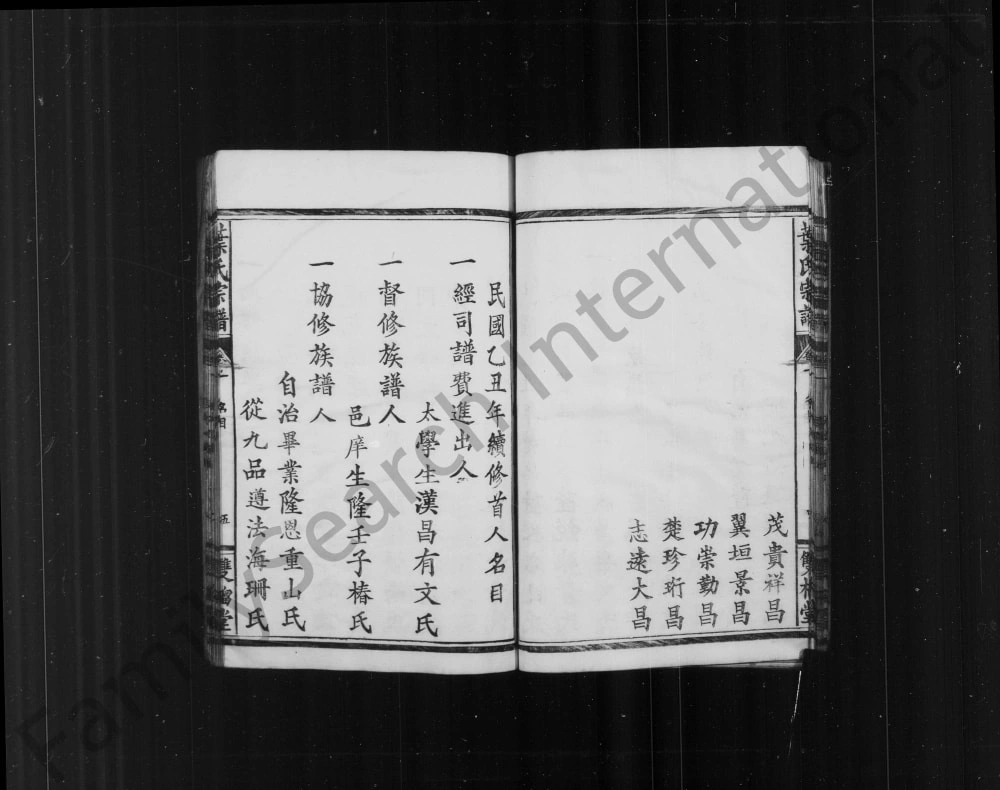 葉氏宗譜
茂貴祥昌
翼垣景昌
功崇勤昌
楚珍珩昌
志遠大昌
民國乙丑年續修首人名目
一經司譜費進出人
太學生漢昌有文氏
一督修族譜人
邑庠生隆壬子椿氏
一協修族譜人
自治畢業隆恩重山氏
從九品遵法海珊氏
葉氏宗譜
名目
五
FamilySearch International